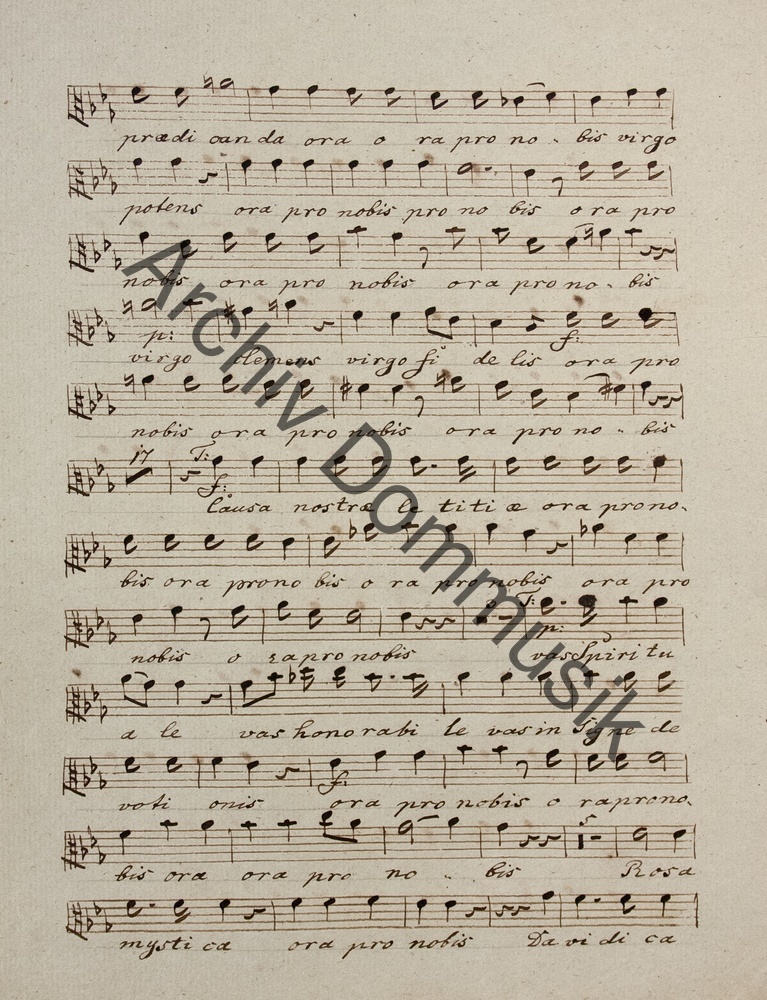 prædi canda ora o ra pro no - bis virgo
potens ora pro nobis pro no bis ora pro
nobis ora pro nobis ora pro no - bis
p: f:
virgo clemens virgo fi de lis ora pro
nobis ora pro nobis ora pro no - bis
17 T:
f:
Causa nostræ le titi æ ora prono-
bis ora prono bis o ra pro nobis ora pro
T:
p:
nobis o ra pro nobis vas Spiri tu
a le vas honorabi le vas in signe de
f:
voti onis ora pro nobis o ra prono-
5
bis ora ora pro no - bis Rosa
mysti ca ora pro nobis Da vi di ca
Archiv Dommusik